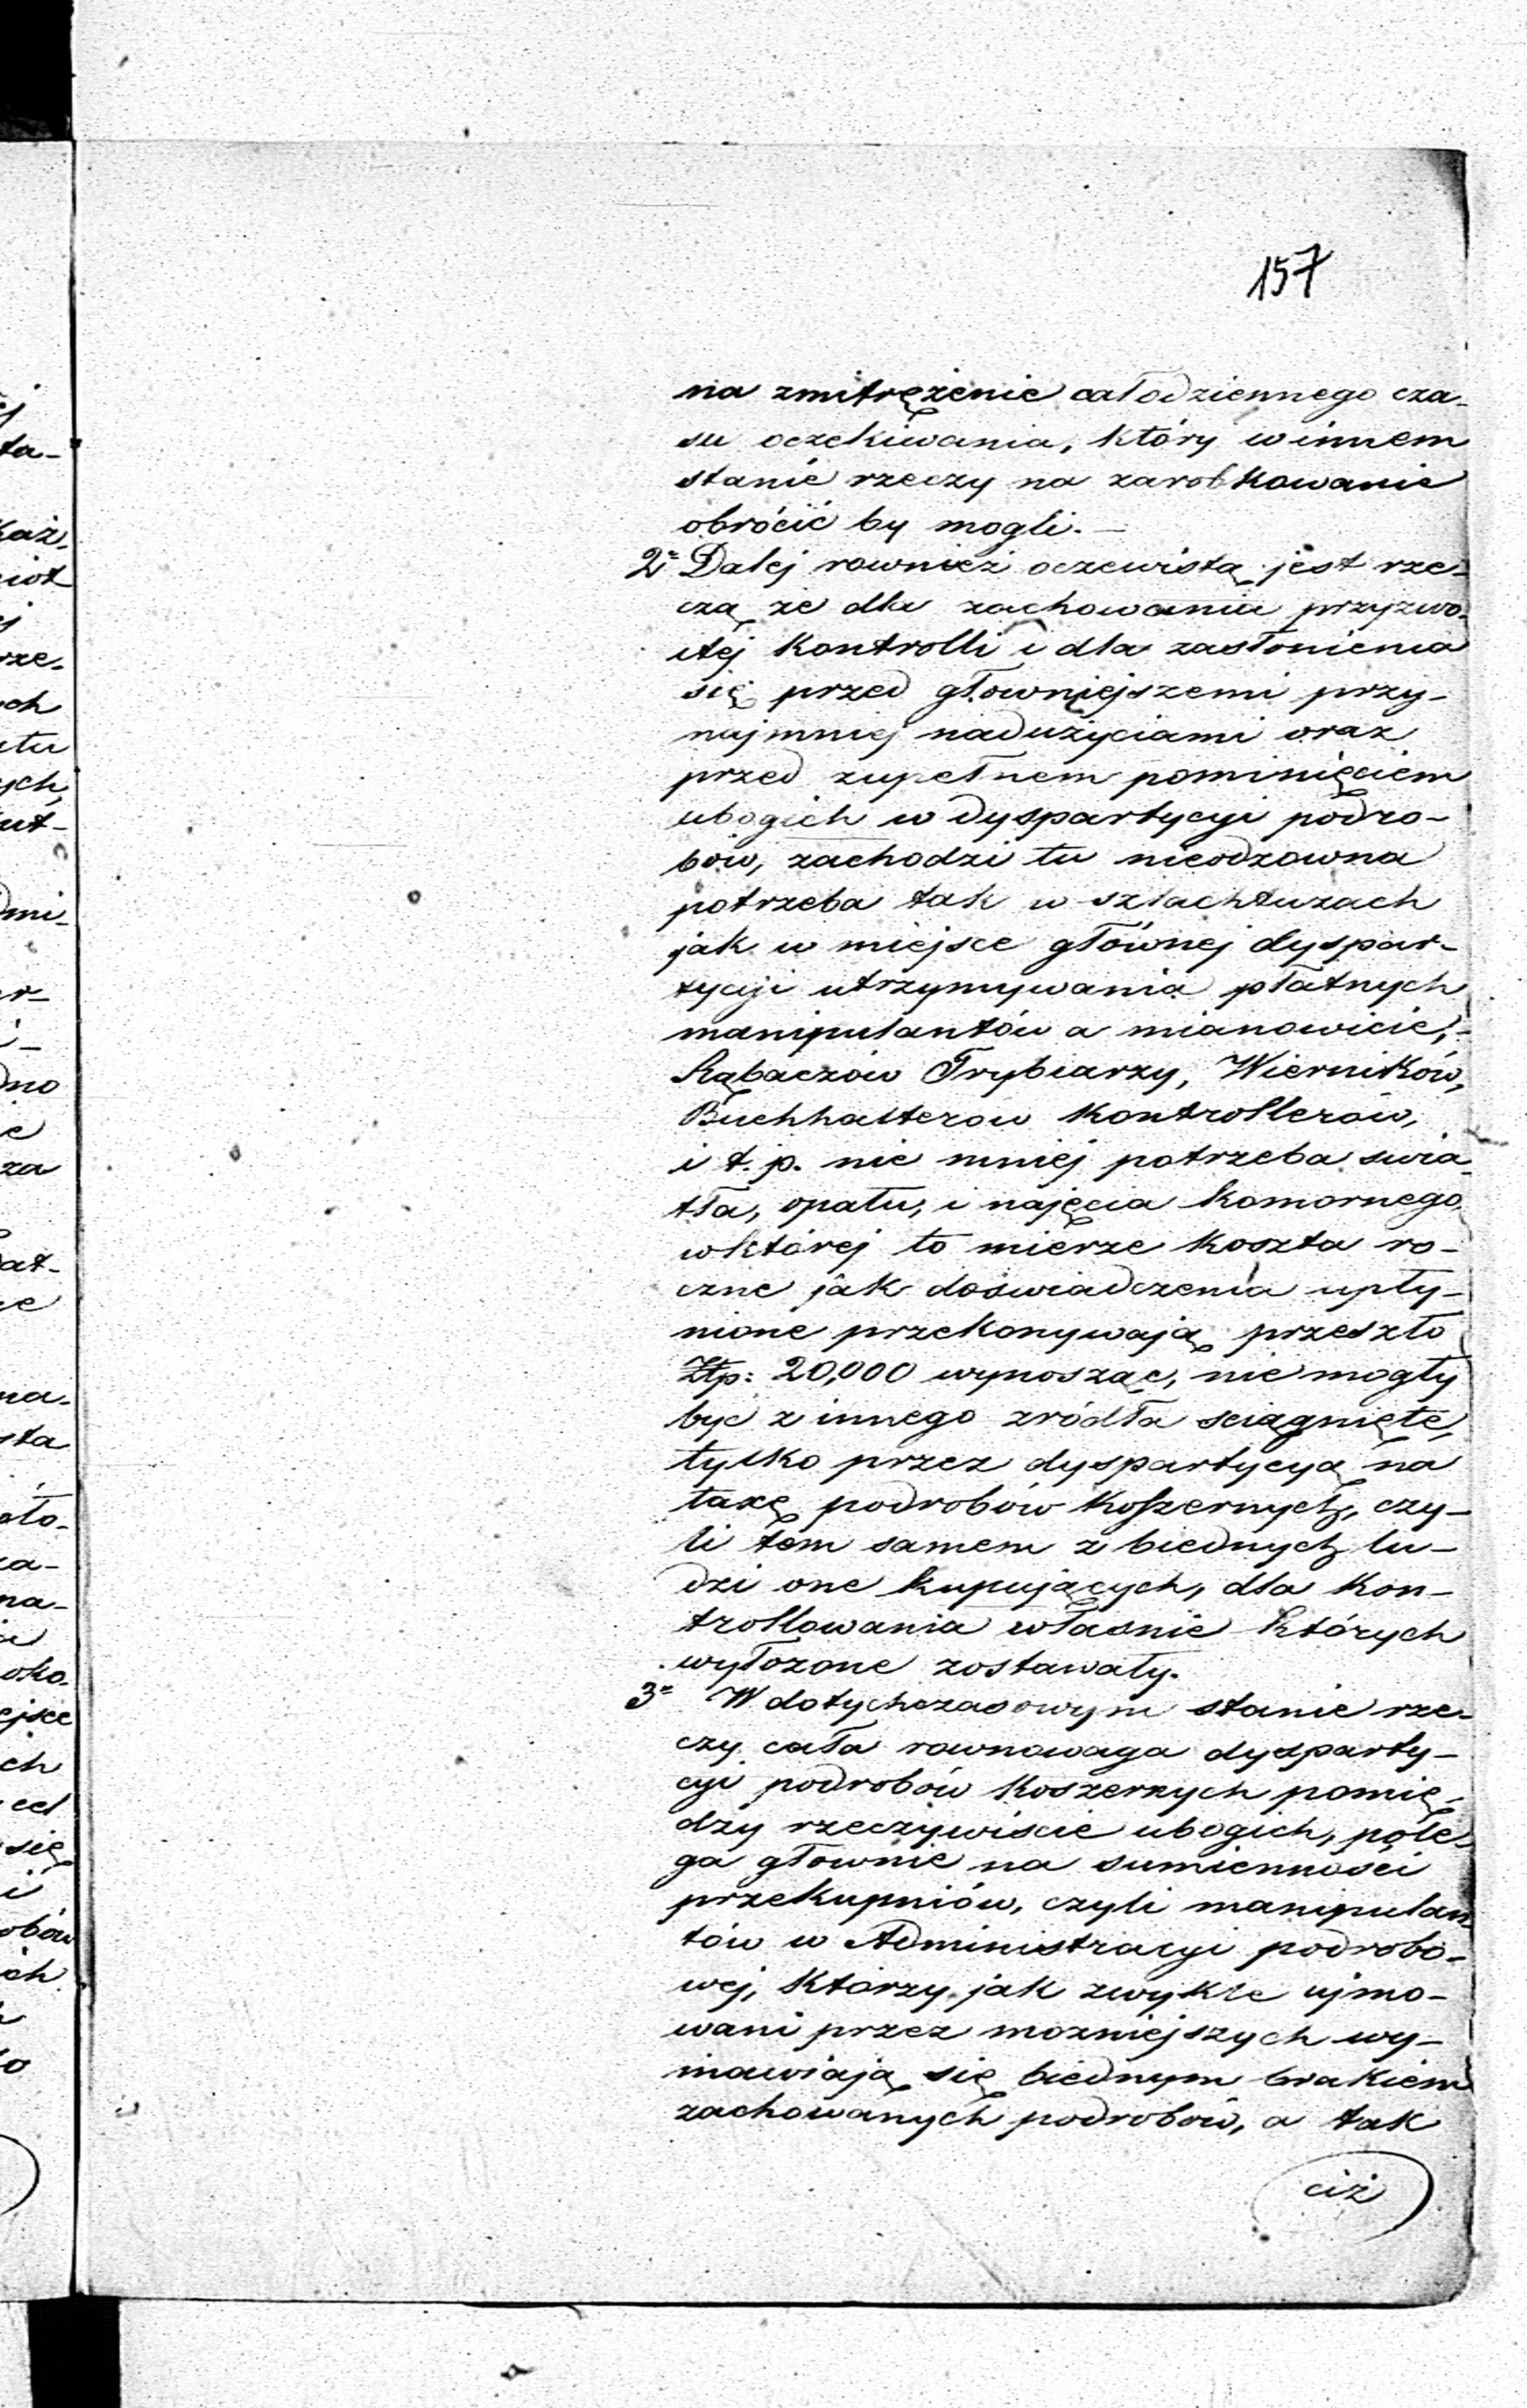 157
na zmitrężenie całodziennego cza-
su oczekiwania, który w innem
stanie rzeczy na zarobkowanie
obrócić by mogli. —
2= Dalej rownież oczewistą jest rze-
czą że dla zachowania przyzwo-
itéj Kontrolli i dla zasłonienia
się przed głowniejszemi przy-
najmniej nadużyciami oraz
przed zupełnem pominięciem
ubogich w dyspartycyi podro-
bów, zachodzi tu nieodzowna
potrzeba tak w szlachtuzach
jak w miejsce głównej dyspar-
tycyi utrzymywania płatnych
manipulantów a mianowicie,
Rąbaczów Trybiarzy, Wierników,
Buchhalterow Kontrollerów,
i t. p. nie mniej potrzeba swia-
tła, opału, i najęcia komornego
w której to mierze koszta ro-
czne jak doswiadczenia upły-
nione przekonywają przeszło
Złp: 20,000 wynosząc, nie mogły
być z innego zródła sciągnięte,
tylko przez dyspartycyą na
taxę podrobów Koszernych, czy-
li tem samem z biednych lu-
dzi one kupujących, dla Kon-
trollowania własnie których
wyłożone zostawały.
3= W dotychczasowym stanie rze-
czy cała rownowaga dysparty-
cyi podrobów Koszernych pomię-
dzy rzeczywiscie ubogich, pole-
ga głownie na sumienności
przekupniów, czyli manipulan-
tów w Administracyi podrobo-
wej, którzy jak zwykle ujmo-
wani przez możniejszych wy-
mawiają się biednym brakiem
zachowanych podrobów, a tak
ciż